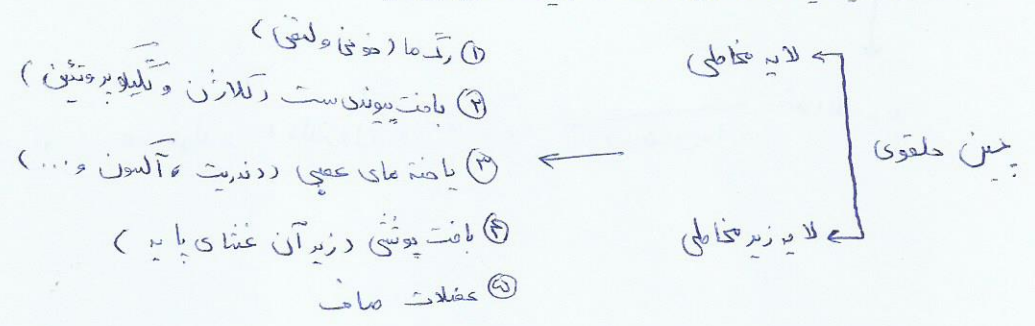 چین حلقوی
لایه مخاطی
لایه زیر مخاطی
① رگ ها (خونی و لنفی)
② بافت پیوندی سست (کلاژن و گلیکوپروتئین)
③ یاخته های عصبی (دندریت، آکسون و ...)
④ بافت پوششی (زیر آن غشای پایه)
⑤ عضلات صاف